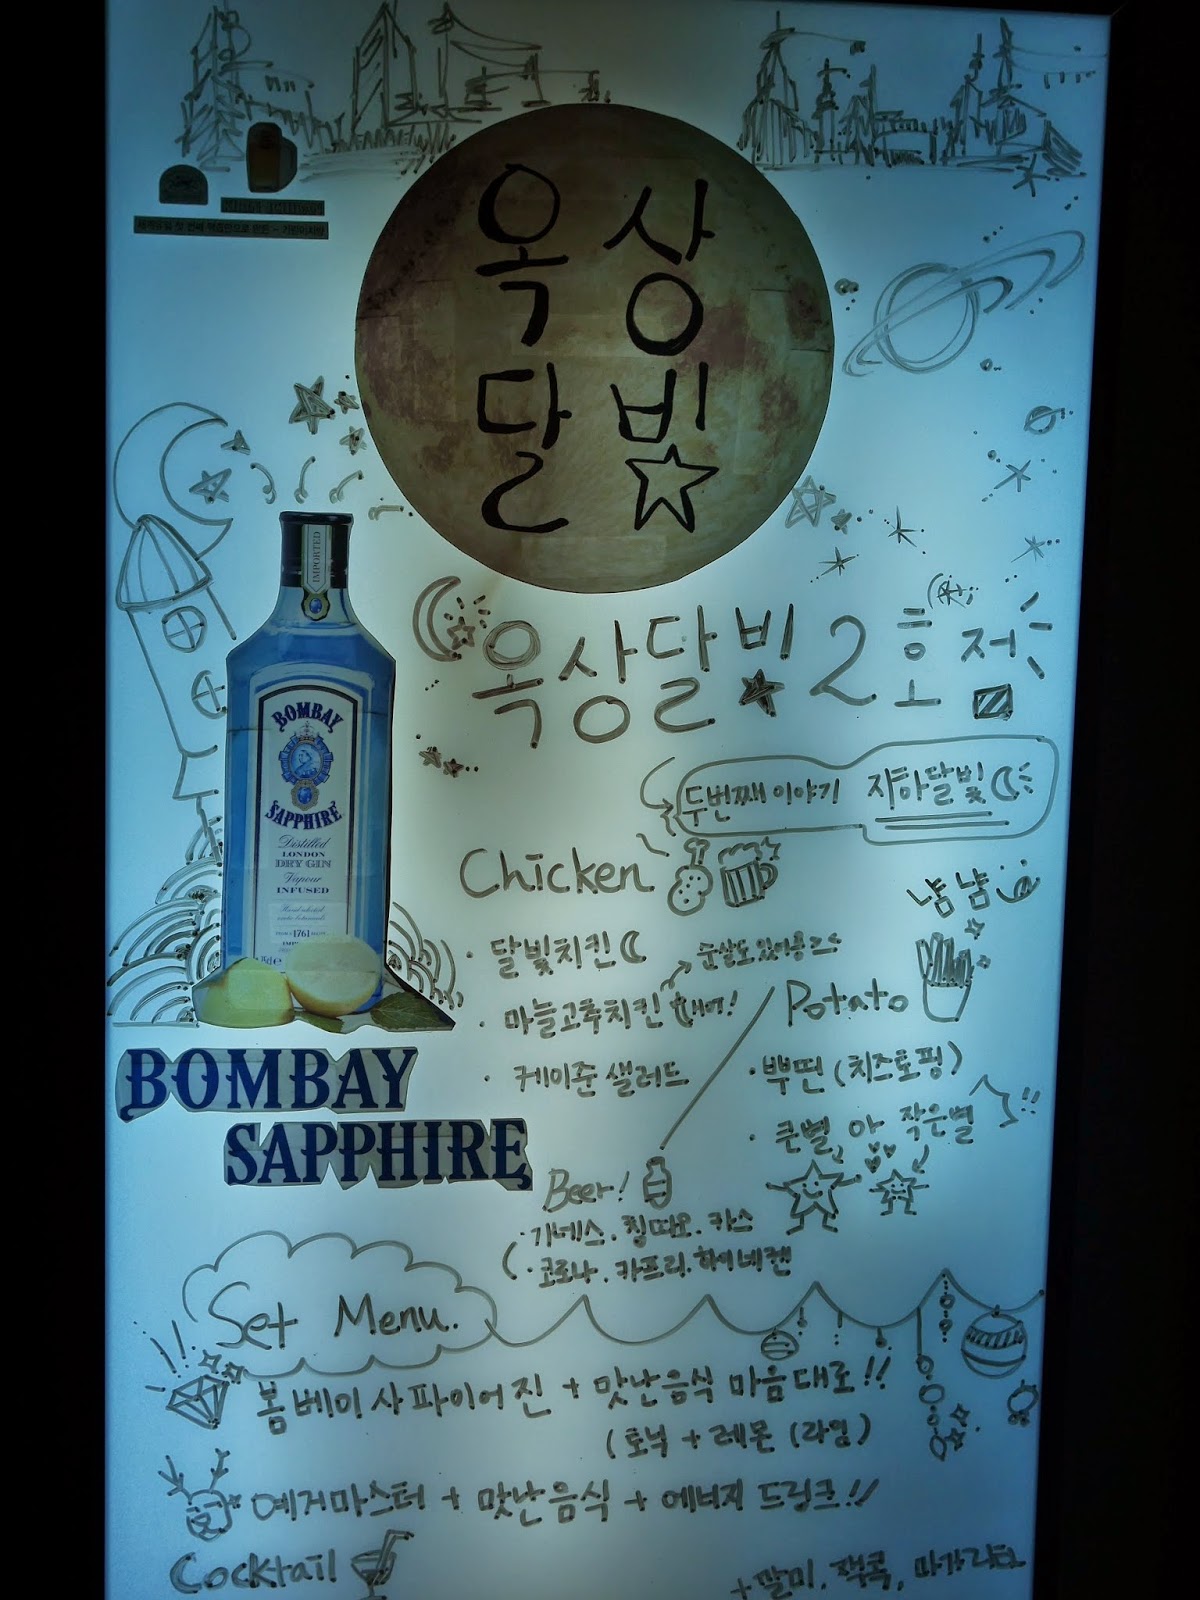 옥상
달빛
제주도 및 전 세계 맥집만으로 만든 - 기린이치방
IMPORTED
옥상달빛 2호점
BOMBAY
SAPPHIRE
Distilled
LONDON
DRY GIN
Vapour
INFUSED
1761
두번째 이야기 지하달빛
Chicken
냠냠
· 달빛치킨
순살도 있어용ㅎㅎ
· 마늘고추치킨 대여!
Potato
· 케이준 샐러드
· 뿌띤 (치즈토핑)
· 큰별 앙 작은별
BOMBAY
SAPPHIRE
Beer!
· 기네스. 칭따오. 카스
· 코로나. 카프리. 하이네켄
Set Menu.
봄베이 사파이어 진 + 맛난음식 마음대로!!
(토닉 + 레몬 (라임)
예거마스터 + 맛난음식 + 에너지 드링크!!
Cocktail
+ 깔미. 잭콕. 마가리타